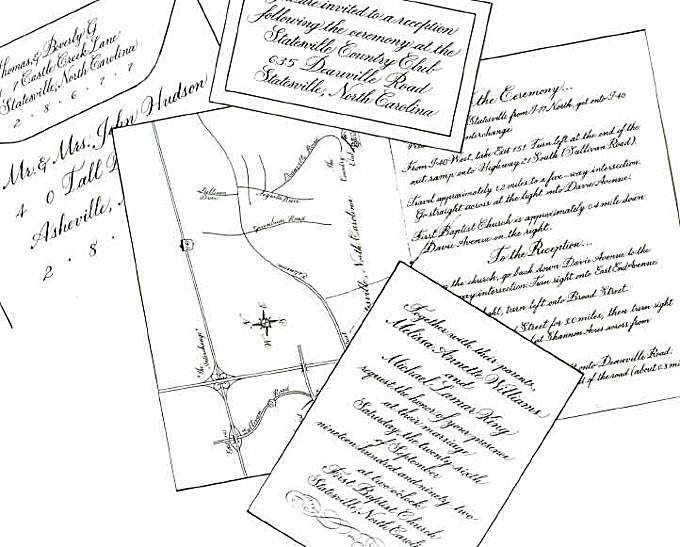 Thomas, & Beverly G
7 Castle Creek Lane
Statesville, North Carolina
2 . 8 . 6 . 7 . 7
Mr. & Mrs. John Hudson
4 0 Tall
Asheville,
2 . 8 .
are invited to a reception
following the ceremony at the
Statesville Country Club
635 Dearville Road
Statesville, North Carolina
Road
North Carolina
the Ceremony...
Statesville from I-77 North, get onto I-40
interchange
From I-40 West, take Exit 151. Turn left at the end of the
exit ramp onto Highway 21 South (Sullivan Road).
Travel approximately 1.2 miles to a five-way intersection.
Go straight across at the light onto Davie Avenue.
First Baptist Church is approximately 0.4 mile down
Davie Avenue on the right.
To the Reception...
the church, go back down Davie Avenue to the
intersection. Turn right onto East End Avenue
light, turn left onto Broad Street.
Street for 3.0 miles, then turn right
Shannon Acres across from
onto Dearville Road.
of the road (about 0.8 mi
Together with their parents,
Melissa Annette Williams
and
Michael Lamar King
request the honor of your presence
at their marriage
Saturday, the twenty-sixth
of September
nineteen hundred and ninety-two
at two o'clock
First Baptist Church
Statesville, North Caroli